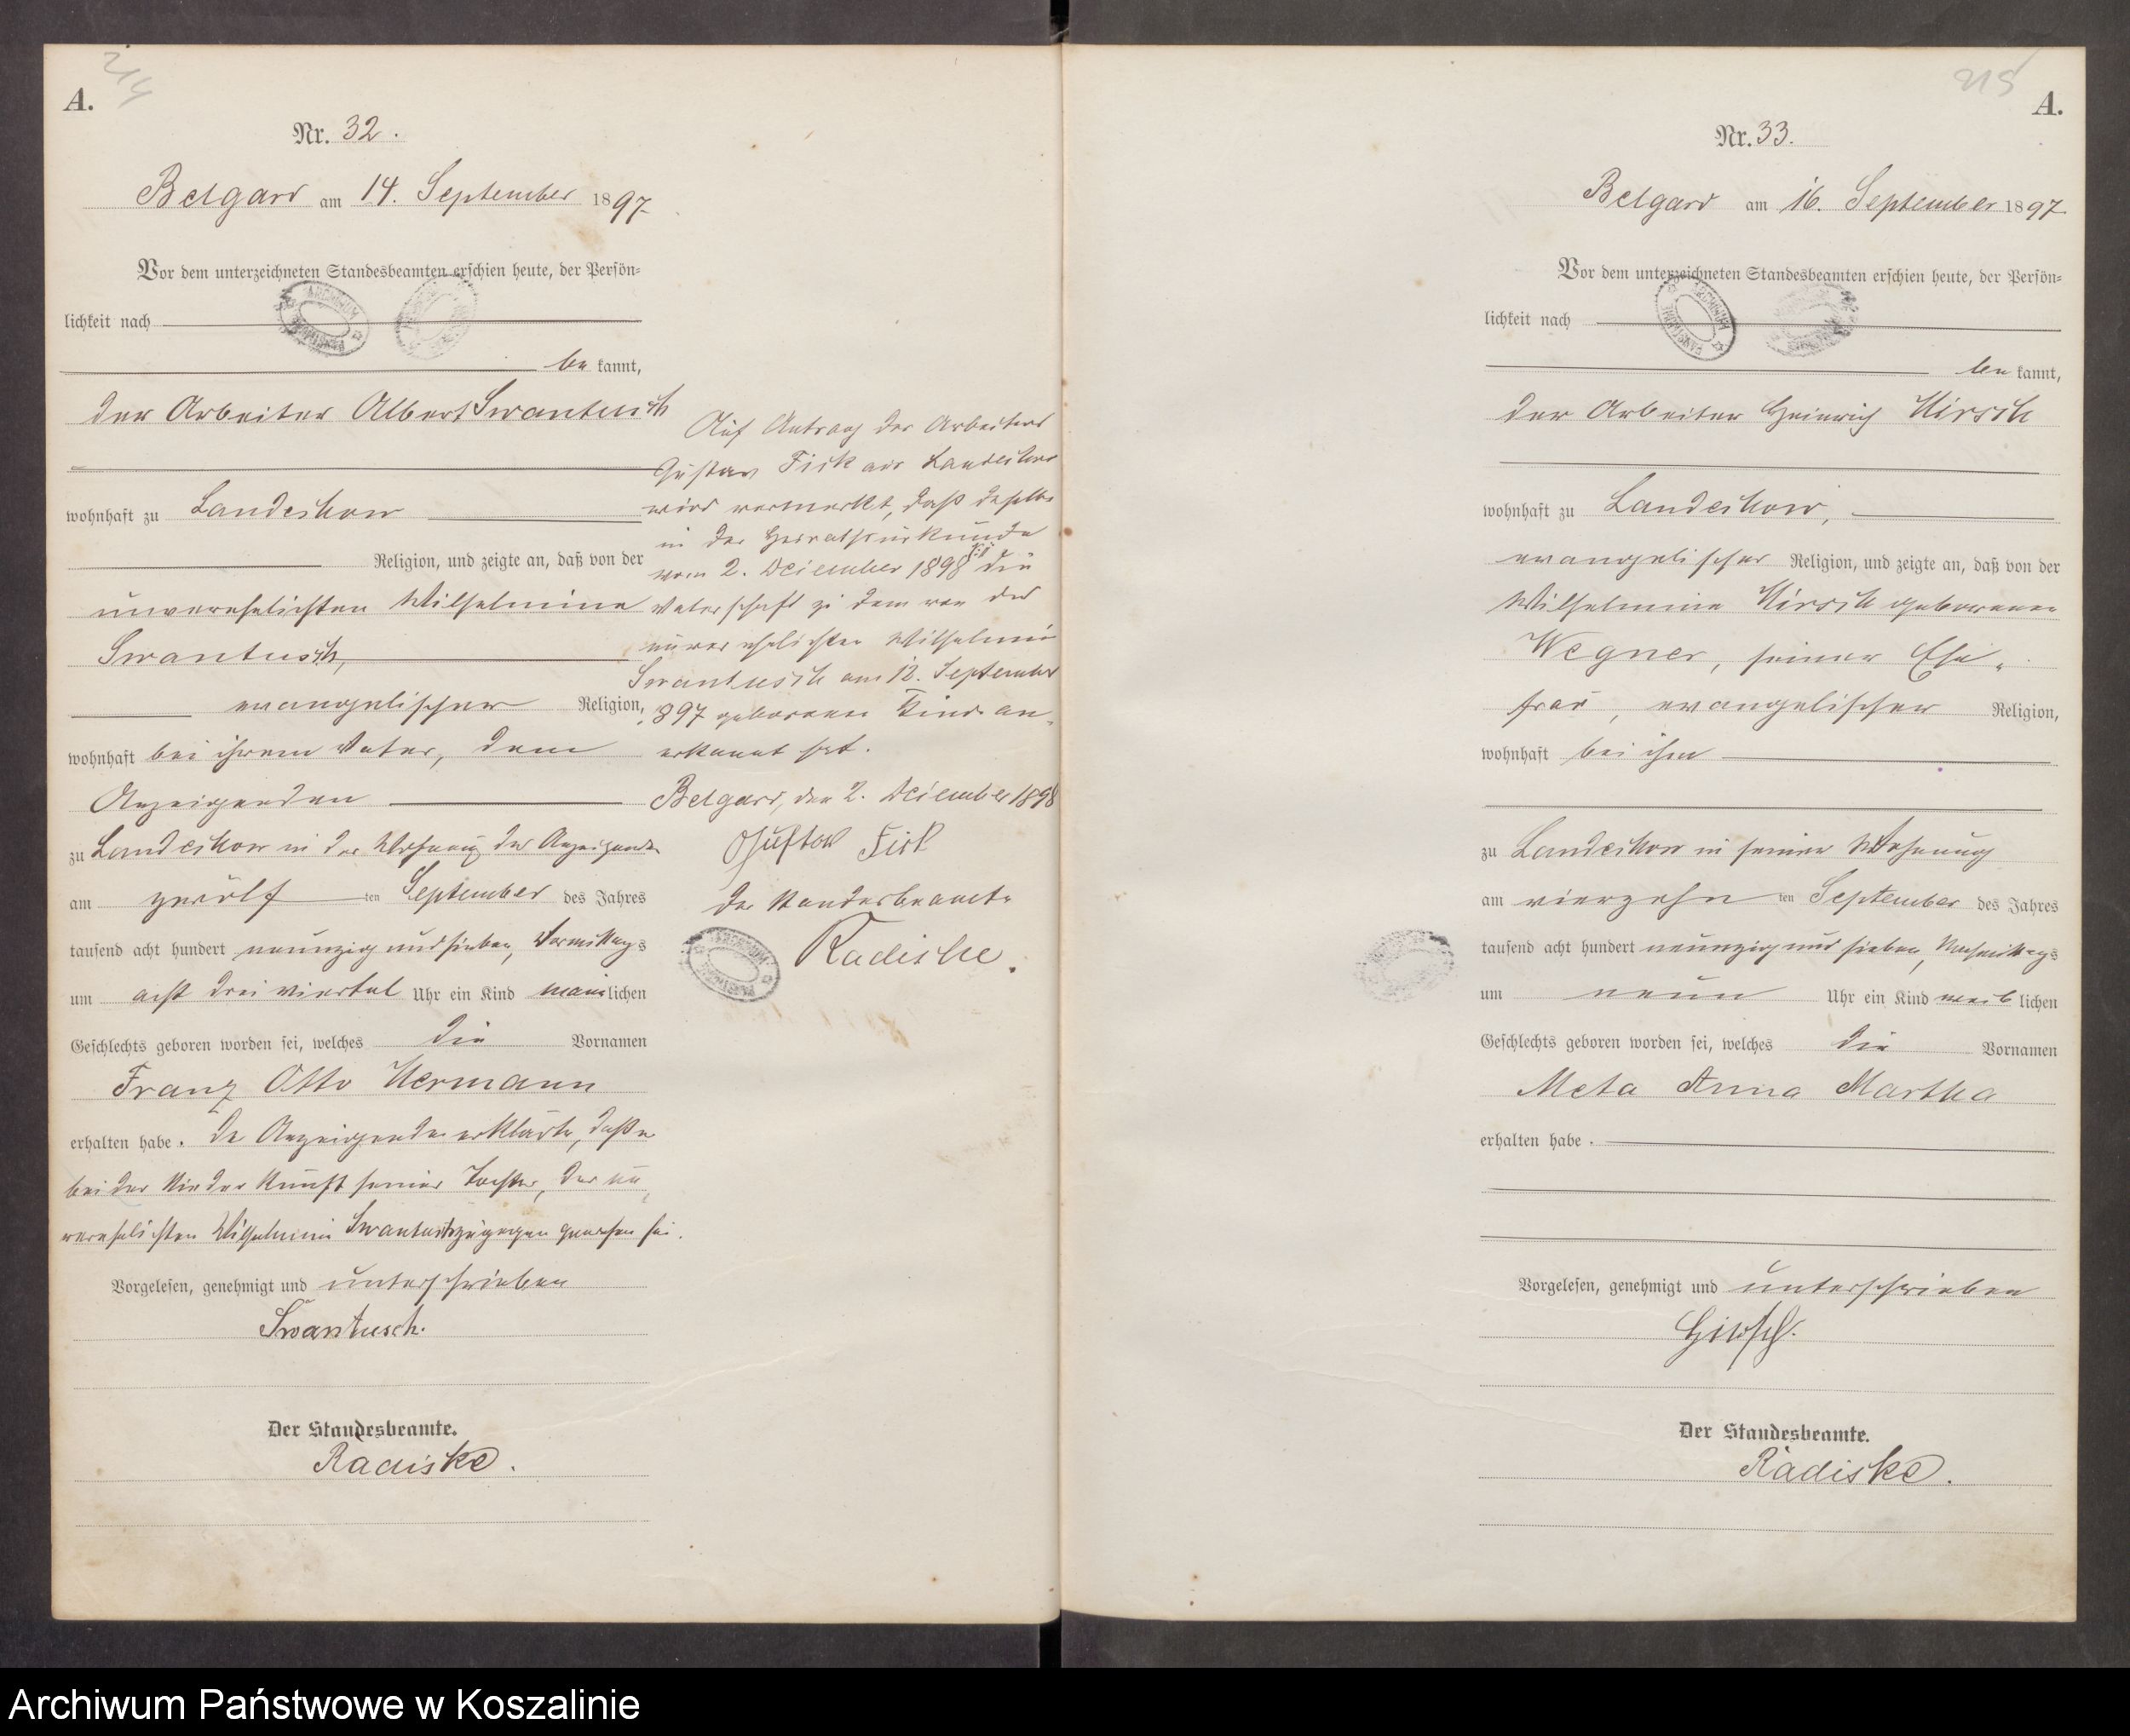 214
A.
Nr. 32.
Belgard am 14. September 1897
Vor dem unterzeichneten Standesbeamten erschien heute, der Persön=
lichkeit nach
be kannt,
der Arbeiter Albert Swantusch
wohnhaft zu Landechow
Religion, und zeigte an, daß von der
unverehelichten Wilhelmine
Swantusch,
evangelischer Religion,
wohnhaft bei ihrem Vater, dem
Anzeigenden
zu Landechow in der Wohnung des Anzeigenden
am zwölf ten September des Jahres
tausend acht hundert neunzig und sieben, Vormittags
um acht drei viertel Uhr ein Kind männlichen
Geschlechts geboren worden sei, welches die Vornamen
Franz Otto Hermann
erhalten habe. Der Anzeigende erklärte, daß er
bei der Niederkunft seiner Tochter, der un
verehelichten Wilhelmine Swantusch zugegen gewesen sei.
Vorgelesen, genehmigt und unterschrieben
Swantusch.
Der Standesbeamte.
Radiske.
Auf Antrag des Arbeiters
Gustav Fick aus Landechow
wird vermerkt, daß derselbe
in der Heiratsurkunde
vom 2. Dezember 1898 die
Vaterschaft zu dem von der
unverehelichten Wilhelmine
Swantusch am 12. September
1897 geborenen Kinde an=
erkannt hat.
Belgard, den 2. Dezember 1898
Gustav Fick
Der Standesbeamte
Radiske.
215
A.
Nr. 33.
Belgard am 16. September 1897
Vor dem unterzeichneten Standesbeamten erschien heute, der Persön=
lichkeit nach
be kannt,
der Arbeiter Heinrich Hirsch
wohnhaft zu Landechow,
evangelischer Religion, und zeigte an, daß von der
Wilhelmine Hirsch geborenen
Wegner, seiner Ehe=
frau, evangelischer Religion,
wohnhaft bei ihm
zu Landechow in seiner Wohnung
am vierzehn ten September des Jahres
tausend acht hundert neunzig und sieben, Nachmittags
um neun Uhr ein Kind weib lichen
Geschlechts geboren worden sei, welches die Vornamen
Meta Anna Martha
erhalten habe.
Vorgelesen, genehmigt und unterschrieben
Hirsch.
Der Standesbeamte.
Radiske.
Archiwum Państwowe w Koszalinie